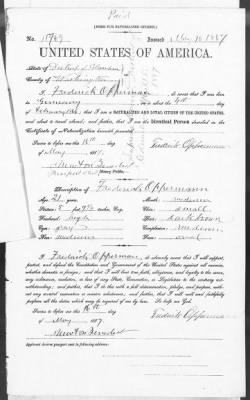 Paid
[FORM FOR NATURALIZED CITIZEN.]
No. 10769 Issued May 10 1887
UNITED STATES OF AMERICA.
State of District of Columbia
County of Washington
I, Frederick Opperman, do swear that I was born in
Germany on or about the 4th day of
February, that I am a NATURALIZED AND LOYAL CITIZEN OF THE UNITED STATES,
and about to travel abroad; and further, that I am the Identical Person described in the
Certificate of Naturalization herewith presented.
Sworn to before me this 10th day
of May 1887
Frederick Opperman
Notary Public.
Description of Frederick Oppermann
Age: 21 years Mouth: medium
Stature: 5 feet inches, Eng. Chin: small
Forehead: high Hair: dark brown
Eyes: gray Complexion: medium
Nose: medium Face: oval
I, Frederick Opperman, do solemnly swear that I will support,
protect, and defend the Constitution and Government of the United States against all enemies,
whether domestic or foreign; and that I will bear true faith, allegiance, and loyalty to the same,
any ordinance, resolution, or law of any State, Convention, or Legislature to the contrary not-
withstanding; and further, that I do this with a full determination, pledge, and purpose, with-
out any mental reservation or evasion whatsoever; and further, that I will well and faithfully
perform all the duties which may be required of me by law. So help me God.
Sworn to before me this 10th day
of May 1887.
Frederick Opperman
Applicant desires passport sent to following address: